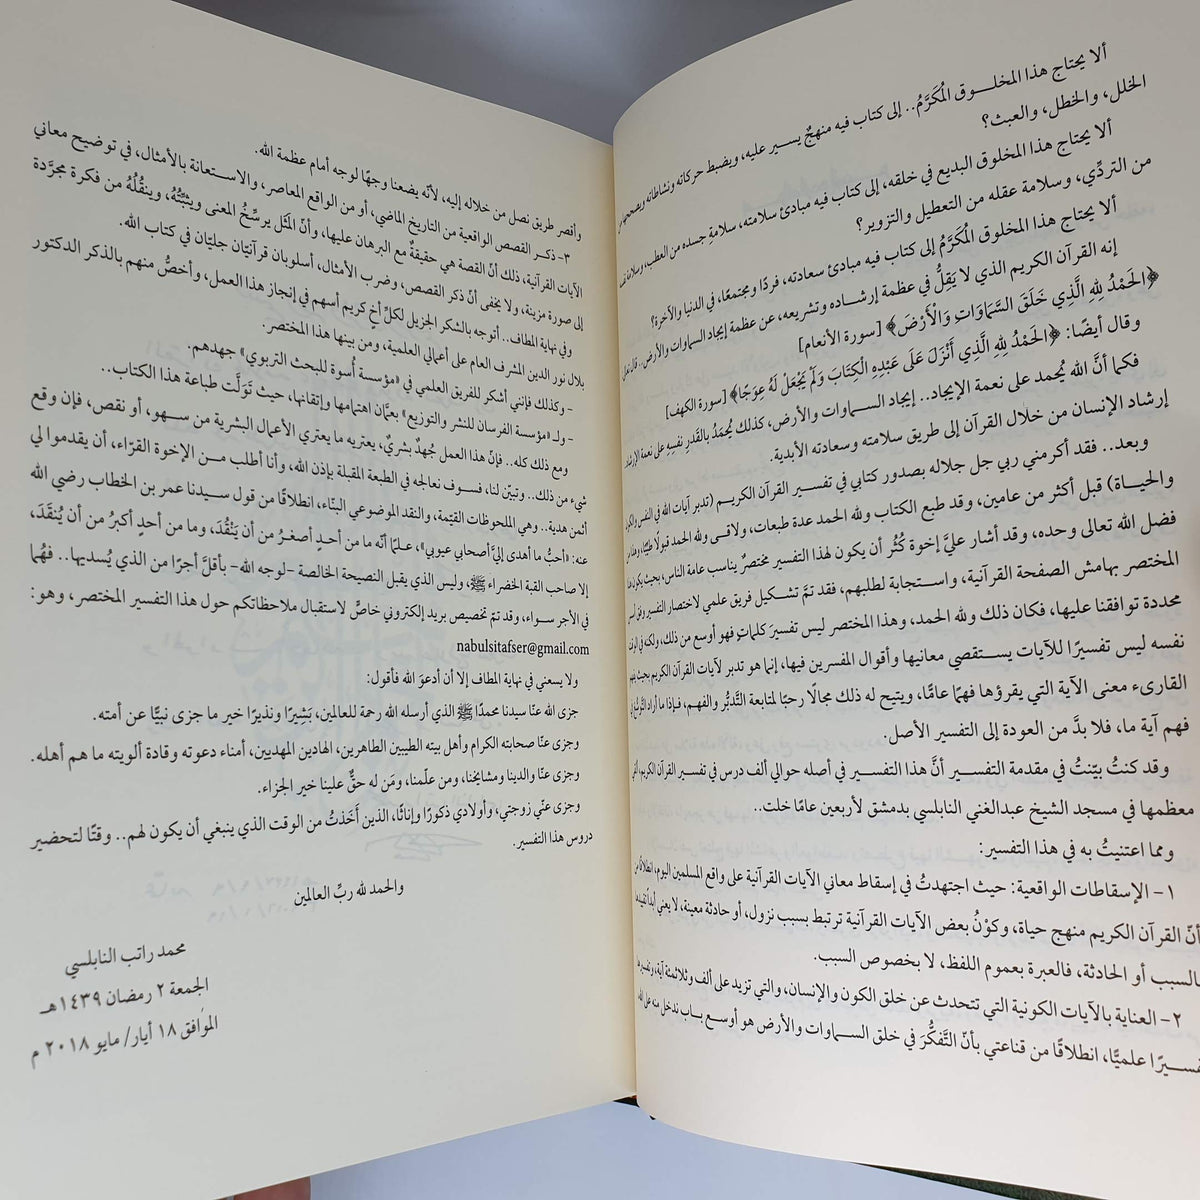 ألا يحتاج هذا المخلوق المُكَرَّمُ.. إلى كتاب فيه منهجٌ يسير عليه، ويضبط حركاته ونشاطاته ويصححها من
الخلل، والخطل، والعبث؟
ألا يحتاج هذا المخلوق البديع في خلقه، إلى كتاب فيه مبادئ سلامته، سلامةِ جسده من العطب، وسلامة نفسه
من التردِّي، وسلامة عقله من التعطيل والتزوير؟
ألا يحتاج هذا المخلوق المُكَرَّمُ إلى كتاب فيه مبادئ سعادته، فردًا ومجتمعًا، في الدنيا والآخرة؟
إنه القرآن الكريم الذي لا يَقِلُّ في عظمة إرشاده وتشريعه، عن عظمة إيجاد السماوات والأرض.. قال تعالى:
﴿الحَمْدُ لِلَّهِ الَّذِي خَلَقَ السَّمَاوَاتِ وَالأَرْضَ﴾ [سورة الأنعام]
وقال أيضًا: ﴿الحَمْدُ لِلَّهِ الَّذِي أَنْزَلَ عَلَى عَبْدِهِ الْكِتَابَ وَلَمْ يَجْعَلْ لَهُ عِوَجًا﴾ [سورة الكهف]
فكما أنَّ الله يُحمد على نعمة الإيجاد.. إيجاد السماوات والأرض، كذلك يُحمَدُ بالقَدرِ نفسِهِ على نعمة الإرشاد
إرشاد الإنسان من خلال القرآن إلى طريق سلامته وسعادته الأبدية.
وبعد.. فقد أكرمني ربي جل جلاله بصدور كتابي في تفسير القرآن الكريم (تدبر آيات الله في النفس والكون
والحياة) قبل أكثر من عامين، وقد طبع الكتاب ولله الحمد عدة طبعات، ولاقى ولله الحمد قبولًا طيّبًا، وهذا من
فضل الله تعالى وحده، وقد أشار عليَّ إخوة كُثُر أن يكون لهذا التفسير مختصرٌ يناسب عامة الناس، بحيث يكون هذا
المختصر بهامش الصفحة القرآنية، واستجابة لطلبهم، فقد تمَّ تشكيل فريق علمي لاختصار التفسير وفق أسس
محددة توافقنا عليها، فكان ذلك ولله الحمد، وهذا المختصر ليس تفسيرَ كلماتٍ فهو أوسع من ذلك، ولكنه في الوقت
نفسه ليس تفسيرًا للآيات يستقصي معانيها وأقوال المفسرين فيها، إنما هو تدبر لآيات القرآن الكريم بحيث يفهم
القارىء معنى الآية التي يقرؤها فهمًا عامًّا، ويتيح له ذلك مجالًا رحبًا لمتابعة التَّدبُّر والفهم، فإذا ما أراد التوسُّع في
فهم آية ما، فلا بدَّ من العودة إلى التفسير الأصل.
وقد كنتُ بيّنتُ في مقدمة التفسير أنَّ هذا التفسير في أصله حوالي ألف درس في تفسير القرآن الكريم، ألقي
معظمها في مسجد الشيخ عبدالغني النابلسي بدمشق لأربعين عامًا خلت..
ومما اعتنيتُ به في هذا التفسير:
١- الإسقاطات الواقعية: حيث اجتهدتُ في إسقاط معاني الآيات القرآنية على واقع المسلمين اليوم، انطلاقًا من
أنّ القرآن الكريم منهج حياة، وكوْنُ بعض الآيات القرآنية ترتبط بسبب نزول، أو حادثة معينة، لا يعني أبداً تقييدها
بالسبب أو الحادثة، فالعبرة بعموم اللفظ، لا بخصوص السبب.
٢- العناية بالآيات الكونية التي تتحدث عن خلق الكون والإنسان، والتي تزيد على ألف وثلاثمئة آية، وتفسيرها
تفسيرًا علميًّا، انطلاقًا من قناعتي بأنّ التَّفكُّرَ في خلق السماوات والأرض هو أوسع باب ندخل منه على الله
وأقصر طريق نصل من خلاله إليه، لأنّه يضعنا وجهًا لوجه أمام عظمة الله.
٣- ذكر القصص الواقعية من التاريخ الماضي، أو من الواقع المعاصر، والاستعانة بالأمثال، في توضيح معاني
الآيات القرآنية، ذلك أنّ القصة هي حقيقةٌ مع البرهان عليها، وأنّ المَثَل يرسِّخُ المعنى ويثبِّتُهُ، وينقُلُهُ من فكرة مجرَّدة
إلى صورة مزينة، ولا يخفى أنّ ذكر القصص، وضرب الأمثال، أسلوبان قرآنيّان جليّان في كتاب الله.
وفي نهاية المطاف.. أتوجه بالشكر الجزيل لكلِّ أخٍ كريم أسهم في إنجاز هذا العمل، وأخصُّ منهم بالذكر الدكتور
بلال نور الدين المشرف العام على أعمالي العلمية، ومن بينها هذا المختصر.
- وكذلك فإنني أشكر للفريق العلمي في «مؤسسة أُسوة للبحث التربوي» جهدهم.
- ولـ «مؤسسة الفرسان للنشر والتوزيع» بعمَّان اهتمامها وإتقانها، حيث تَوَلَّت طباعة هذا الكتاب..
ومع ذلك كله.. فإنّ هذا العمل جُهدٌ بشريٌّ، يعتريه ما يعتري الأعمال البشرية من سهو، أو نقص، فإن وقع
شيء من ذلك.. وتبيّن لنا، فسوف نعالجه في الطبعة المقبلة بإذن الله، وأنا أطلب من الإخوة القرّاء، أن يقدموا لي
أثمن هدية.. وهي الملحوظات القيّمة، والنقد الموضوعي البنّاء، انطلاقًا من قول سيدنا عمر بن الخطاب رضي الله
عنه: «أحبُّ ما أهدى إليَّ أصحابي عيوبي»، علمًا أنّه ما من أحدٍ أصغرُ من أن يَنْقُدَ، وما من أحدٍ أكبرُ من أن يُنقَدَ،
إلا صاحب القبة الخضراء ﷺ، وليس الذي يقبل النصيحة الخالصة -لوجه الله- بأقلَّ أجرًا من الذي يُسديها.. فهُما
في الأجر سواء، وقد تمّ تخصيص بريد إلكتروني خاصٌّ لاستقبال ملاحظاتكم حول هذا التفسير المختصر، وهو:
nabulsitafser@gmail.com
ولا يسعني في نهاية المطاف إلا أن أدعوَ الله فأقول:
جزى الله عنّا سيدنا محمدًا ﷺ الذي أرسله الله رحمة للعالمين، بَشِيرًا ونذيرًا خير ما جزى نبيًّا عن أمته.
وجزى عنّا صحابته الكرام وأهل بيته الطيبين الطاهرين، الهادين المهديين، أمناء دعوته وقادة ألويته ما هم أهله.
وجزى عنّا والدينا ومشايخنا، ومن علّمنا، ومَن له حقٌّ علينا خير الجزاء.
وجزى عنّي زوجتي، وأولادي ذكورًا وإناثًا، الذين أَخَذتُ من الوقت الذي ينبغي أن يكون لهم.. وقتًا لتحضير
دروس هذا التفسير.
والحمد لله ربّ العالمين
محمد راتب النابلسي
الجمعة ٢ رمضان ١٤٣٩هـ
الموَافق ١٨ أيار/ مايو ٢٠١٨ م